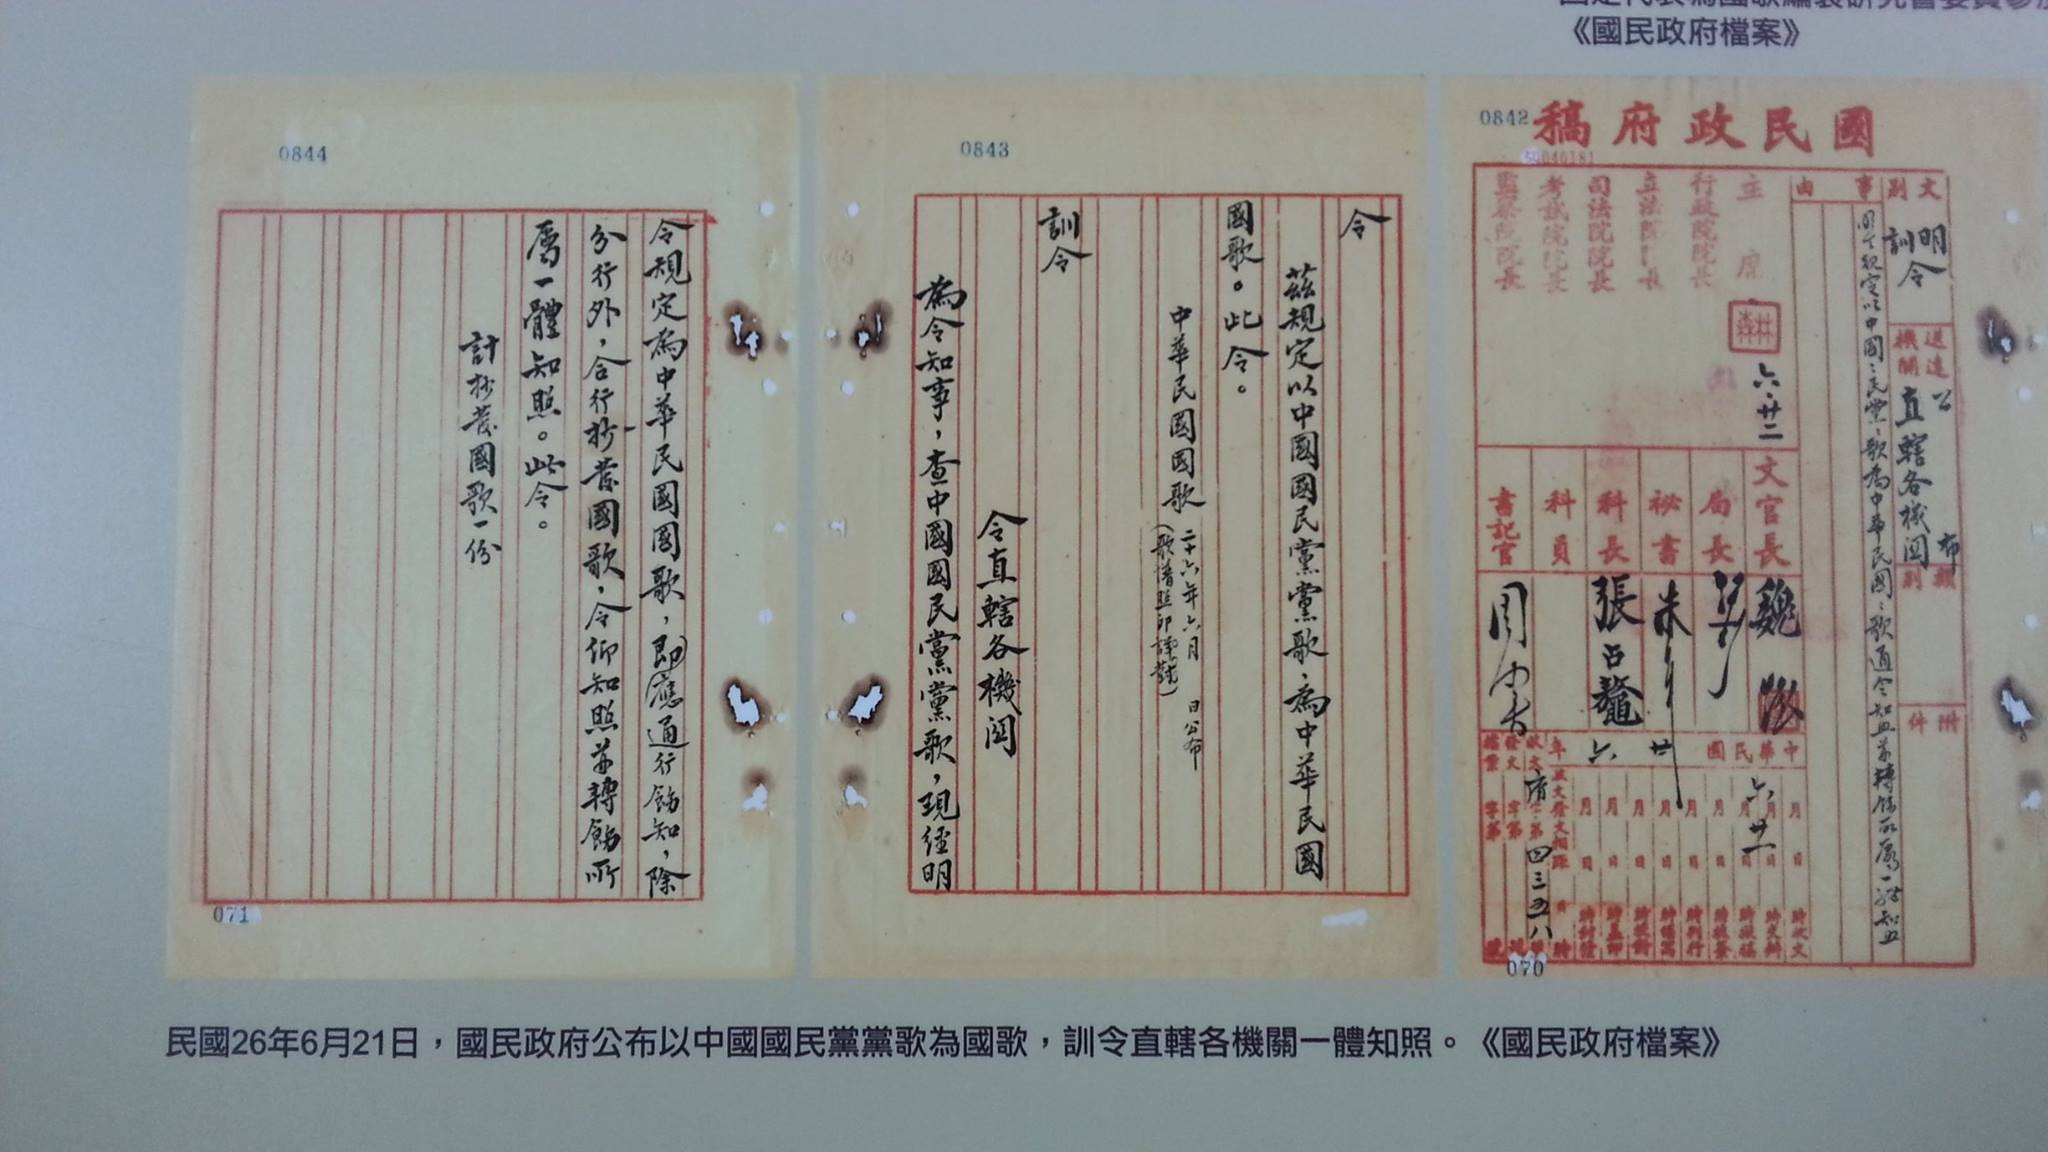 《國民政府檔案》
0842
國民政府稿
文別
明
訓令
送達機關
直轄各機關
公布
類別
附件
事由
明令規定以中國國民黨黨歌為中華民國國歌通令知照并轉飭所屬一體知照
主席
六.廿二
行政院院長
立法院院長
司法院院長
考試院院長
監察院院長
文官長
局長
祕書
科長
科員
書記官
魏
朱
張
周
中華民國廿六年
六
廿一
四三五八
070
0843
令
茲規定以中國國民黨黨歌、為中華民國
國歌。此令。
中華民國國歌
二十六年六月 日公布
訓令
令直轄各機關
為令知事,查中國國民黨黨歌,現經明
0844
令規定為中華民國國歌,即應通行飭知,除
分行外,合行抄發國歌,令仰知照并轉飭所
屬一體知照。此令。
計抄發國歌一份
071
民國26年6月21日,國民政府公布以中國國民黨黨歌為國歌,訓令直轄各機關一體知照。《國民政府檔案》